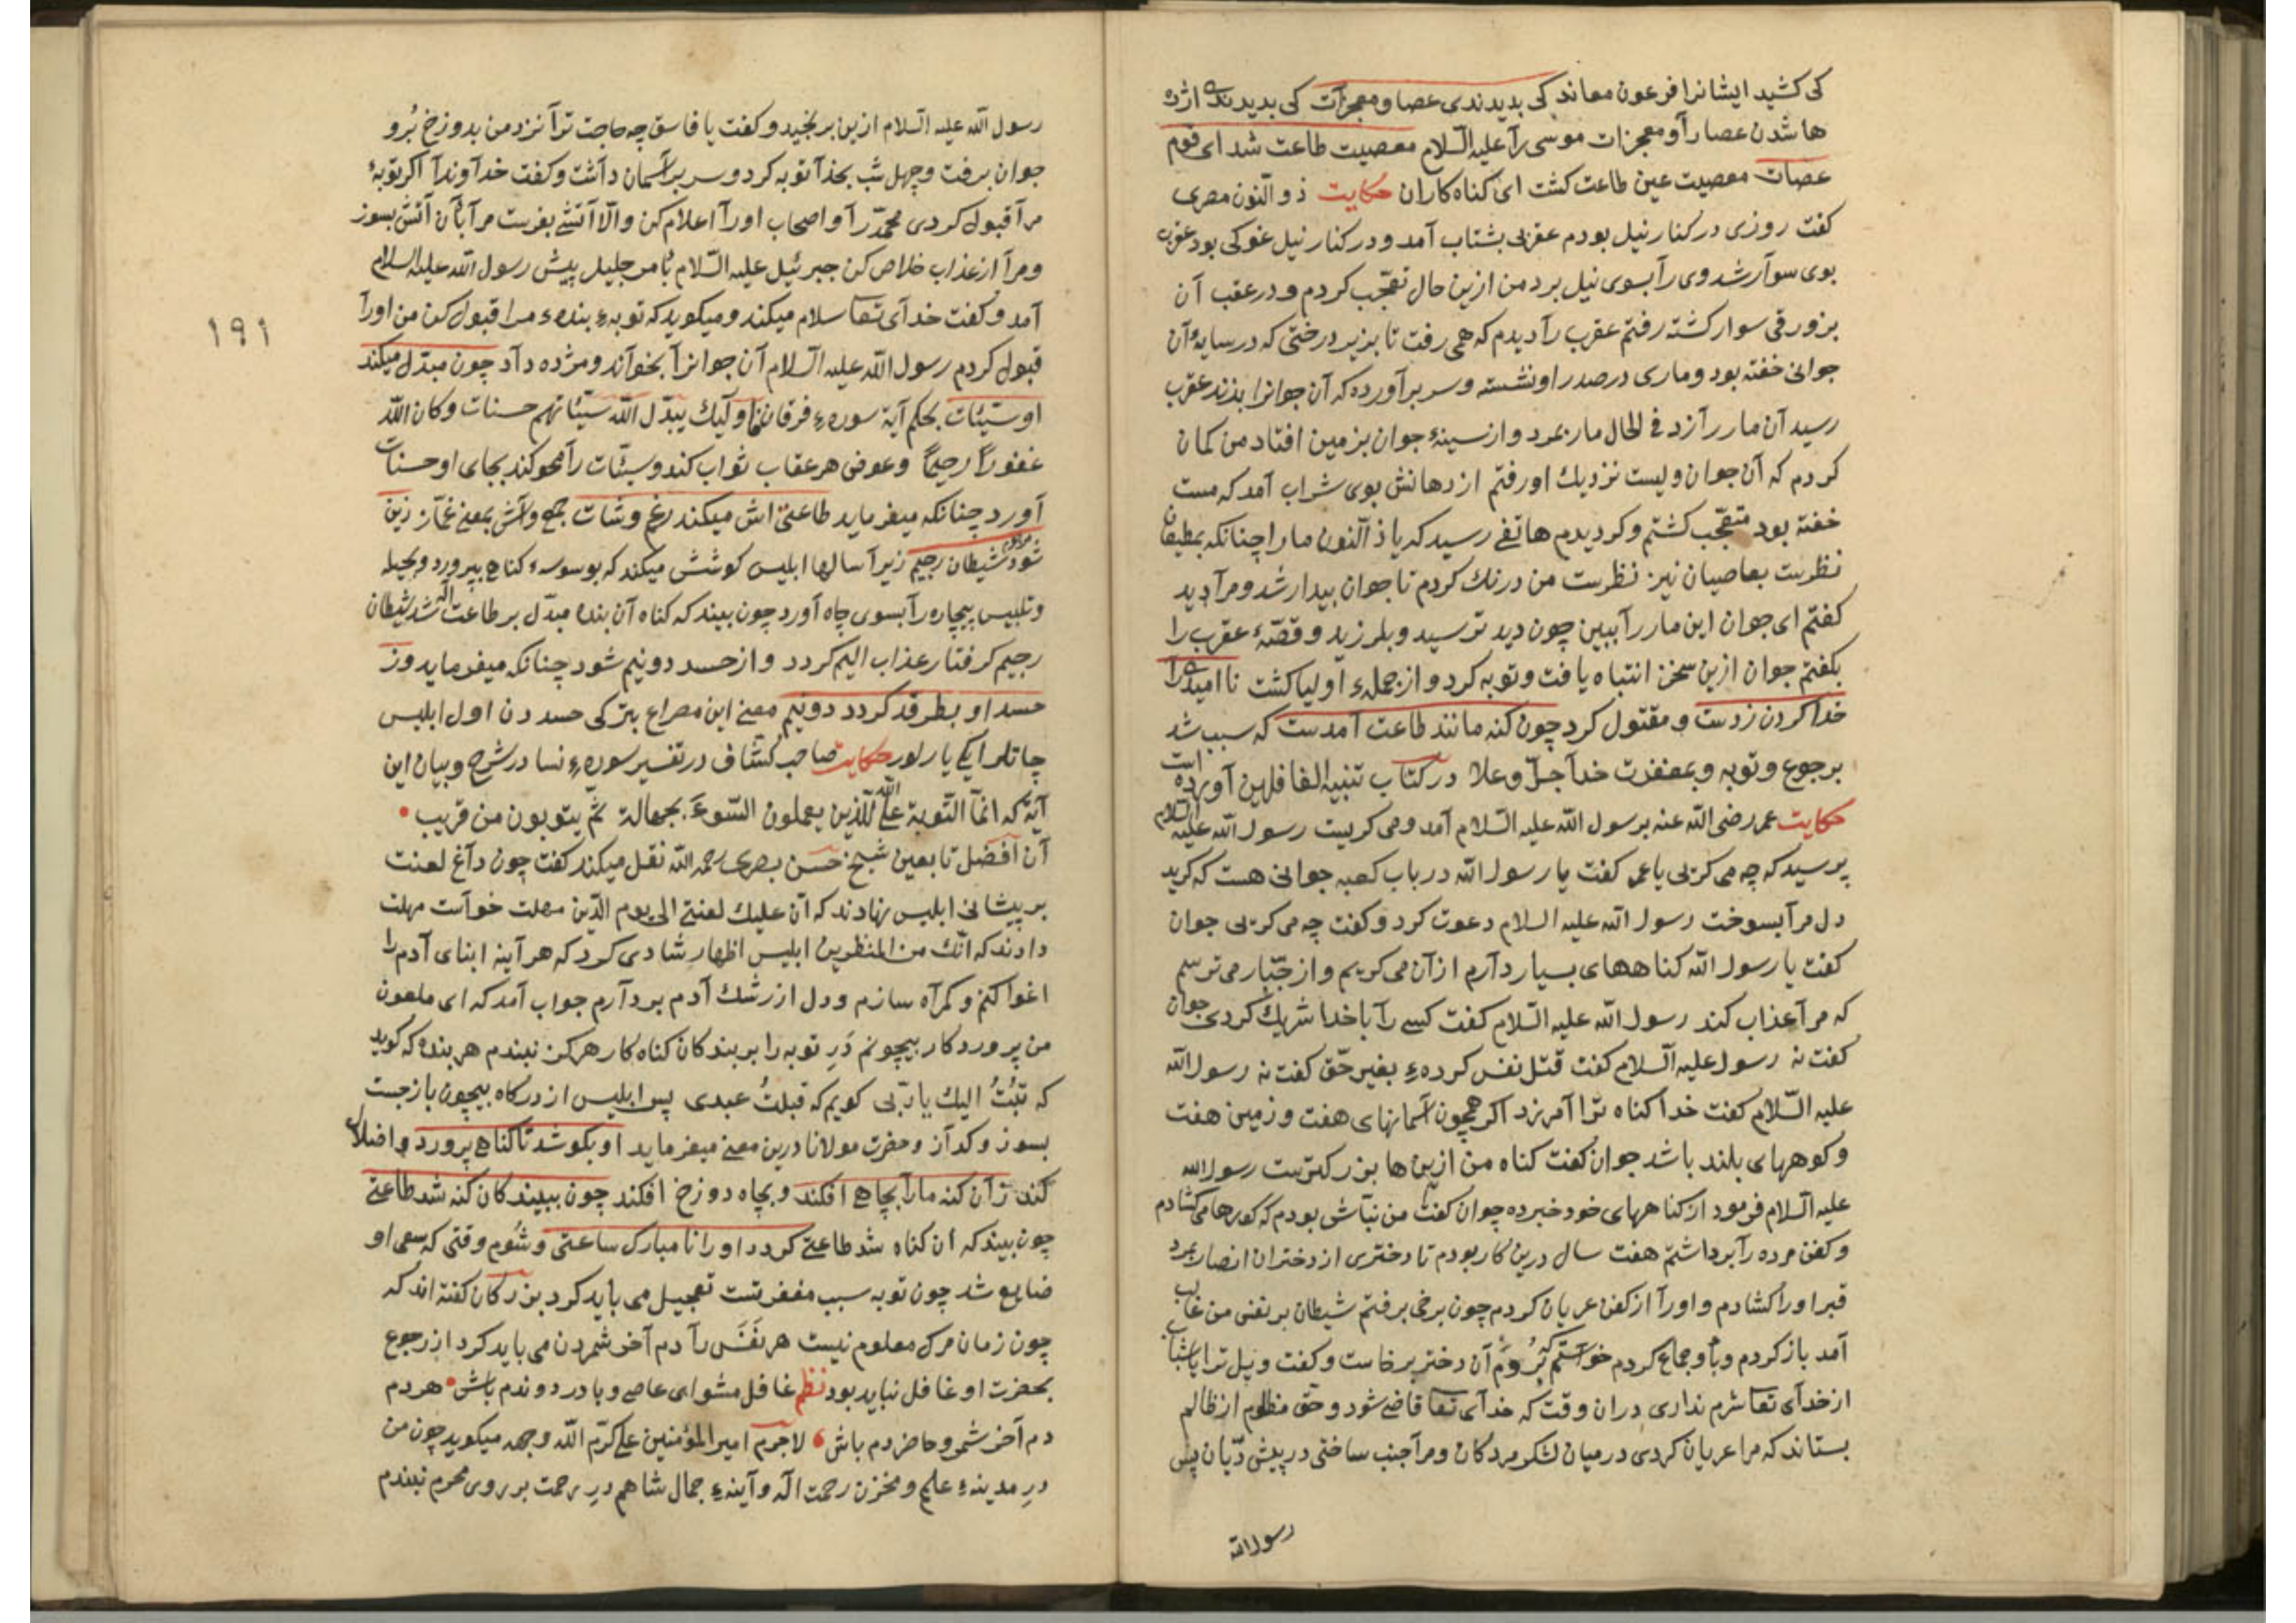 کی کشید ایشانرا فرعون معاند کی بدیدندی عصا و معجزات کی بدیدند اژد
ها شدن عصا را و معجزات موسی را علیه السّلام معصیت طاعت شد ای قوم
عصات معصیت عین طاعت کشت ای کناه کاران حکایت ذو النون مصری
کفت روزی در کنار نیل بودم عقربی بشتاب آمد و در کنار نیل غوکی بود عقرب
بوی سوار شد وی را بسوی نیل برد من ازین حال تعجّب کردم و در عقب آن
بزورقی سوار کشته رفتم عقرب را دیدم که همی رفت تا بزیر درختی که در سایهٔ آن
جوانی خفته بود و ماری در صدر او نشسته و سر برآورده که آن جوانرا بزند عقرب
رسید آن مار را زد فی الحال مار بمرد و از سینهٔ جوان بزمین افتاد من کمان
کردم که آن جوان ولیست نزدیك او رفتم از دهانش بوی شراب آمد که مست
خفته بود متعجّب کشتم و کردیدم هاتفی رسید که یا ذ النون ما را چنانکه بمطیعان
نظرست بعاصیان نیز نظرست من درنك کردم تا جوان بیدار شد و مرا دید
کفتم ای جوان این مار را ببین چون دید ترسید و بلرزید و قصّهٔ عقرب را
بکفتم جوان ازین سخن انتباه یافت و توبه کرد و از جملهء اولیا کشت نا امیدیرا
خدا کردن زدست و مقتول کرد چون کنه مانند طاعت آمدست که سبب شد
برجوع و توبه و بمغفرت خدا جلّ و علا در کتاب تنبیه الغافلین آورده است
حکایت عمر رضی الله عنه برسول الله علیه السّلام آمد و می کریست رسول الله علیه السلام
پرسید که چه می کریی یا عمر کفت یا رسول الله در باب کعبه جوانی هست که کریه
دل مرا بسوخت رسول الله علیه السلام دعوت کرد و کفت چه می کریی جوان
کفت یا رسول الله کناههای بسیار دارم از آن می کریم و از جبّار می ترسم
که مرا عذاب کند رسول الله علیه السّلام کفت کسی را با خدا شریك کردی جوان
کفت نه رسول علیه السلام کفت قتل نفس کردهء بغیر حقّ کفت نه رسول الله
علیه السّلام کفت خدا کناه ترا آمرزد اکر همچون آسمانهای هفت و زمین هفت
و کوههای بلند باشد جوان کفت کناه من ازین ها بزرکترست رسول الله
علیه السّلام فرمود از کناههای خود خبر ده جوان کفت من نبّاش بودم که کورها می کشادم
و کفن مرده را برداشتم هفت سال درین کار بودم تا دختری از دختران انصار بمرد
قبر او را کشادم و او را از کفن عریان کردم چون برخی برفتم شیطان بر نفس من غالب
آمد باز کردم و با او جماع کردم خواستم که بروم آن دختر برخاست و کفت ویل ترا یا شاب
از خدای تعا شرم نداری در ان وقت که خدای تعا قاضی شود و حق مظلوم از ظالم
بستاند که مرا عریان کردی در میان لشکر مردکان و مرا جنب ساختی در پیش دیّان پس
رسول الله
رسول الله علیه السلام ازین برنجید و کفت یا فاسق چه حاجت ترا نزد من بدوزخ برو
جوان برفت و چهل شب بخدا توبه کرد و سر بر آسمان داشت و کفت خداوندا اکر توبهٔ
مرا قبول کردی محمّد را و اصحاب او را اعلام کن و الّا آتشی بفرست مرا بآن آتش بسوز
و مرا از عذاب خلاص کن جبرئیل علیه السّلام بامر جلیل پیش رسول الله علیه السلام
آمد و کفت خدای تعا سلام میکند و میکوید که توبهء بندهء مرا قبول کن من او را
۱۹۱
قبول کردم رسول الله علیه السلام آن جوانرا بخواند و مژده داد چون مبدّل میکند
او سیّئات بحکم آیة سورهء فرقان فاولیك یبدّل الله سیّئاتهم حسنات و کان الله
غفوراً رحیماً و عوض هر عقاب ثواب کند و سیّئات را محو کند بجای او حسنات
آورد چنانکه میفرماید طاعتی اش میکند رغم وشات جمع واش بمعنی غمّاز زین
شود مرجوم شیطان رجیم زیرا سالها ابلیس کوشش میکند که بوسوسه کناه بپرورد و بحیله
و تلبیس بیچاره را بسوی چاه آورد چون بیند که کناه آن بنده مبدّل بر طاعت اله شد شیطان
رجیم کرفتار عذاب الیم کردد و از حسد دو نیم شود چنانکه میفرماید وز
حسد او بطرقد کردد دو نیم معنی این مصراع بترکی حسددن اول ابلیس
چاتلر ایکی یاریلور حکایت صاحب کشّاف در تفسیر سورهء نسا در شرح و بیان این
آیة که انّما التّوبة علی الله للّذین یعملون السّوء بجهالة ثمّ یتوبون من قریب
آن افضل تابعین شیخ حسن بصری رحمه الله نقل میکند کفت چون داغ لعنت
بر پیشانی ابلیس نهادند که انّ علیك لعنتی الی یوم الدّین مهلت خواست مهلت
دادند که انّك من المنظرین ابلیس اظهار شادی کرد که هر آینه ابنای آدم را
اغوا کنم و کمراه سازم و دل از رشك آدم بر دارم جواب آمد که ای ملعون
من پروردکار بیچونم دَرِ توبه را بر بندکان کناه کار هرکز نبندم هر بنده که کوید
که تبتُ الیك یا ربّی کویم که قبلتُ عبدی پس ابلیس از درکاه بیچون باز جست
بسوز و کداز و حضرت مولانا درین معنی میفرماید او بکوشد تا کناهی پرورد و اضلال
کند زآن کنه ما را بچاهی افکند و بچاه دوزخ افکند چون ببیند کان کنه شد طاعتی
چون بیند که ان کناه شد طاعتی کردد او را نا مبارک ساعتی و شوم وقتی که سعی او
ضایع شد چون توبه سبب مغفرتست تعجیل می باید کرد بزرکان کفته اند که
چون زمان مرک معلوم نیست هر نفَس را دم آخر شمردن می باید کرد از رجوع
بحضرت او غافل نباید بود نظم غافل مشو ای عاصی و با درد و ندم باش هر دم
دم آخر شمر و حاضر دم باش لا جرم امیر المؤمنین علی کرّم الله وجهه میکوید چون من
درِ مدینهء علم و مخزن رحمت اله و آینهء جمال شاهم درِ رحمت بر روی محرم نبندم